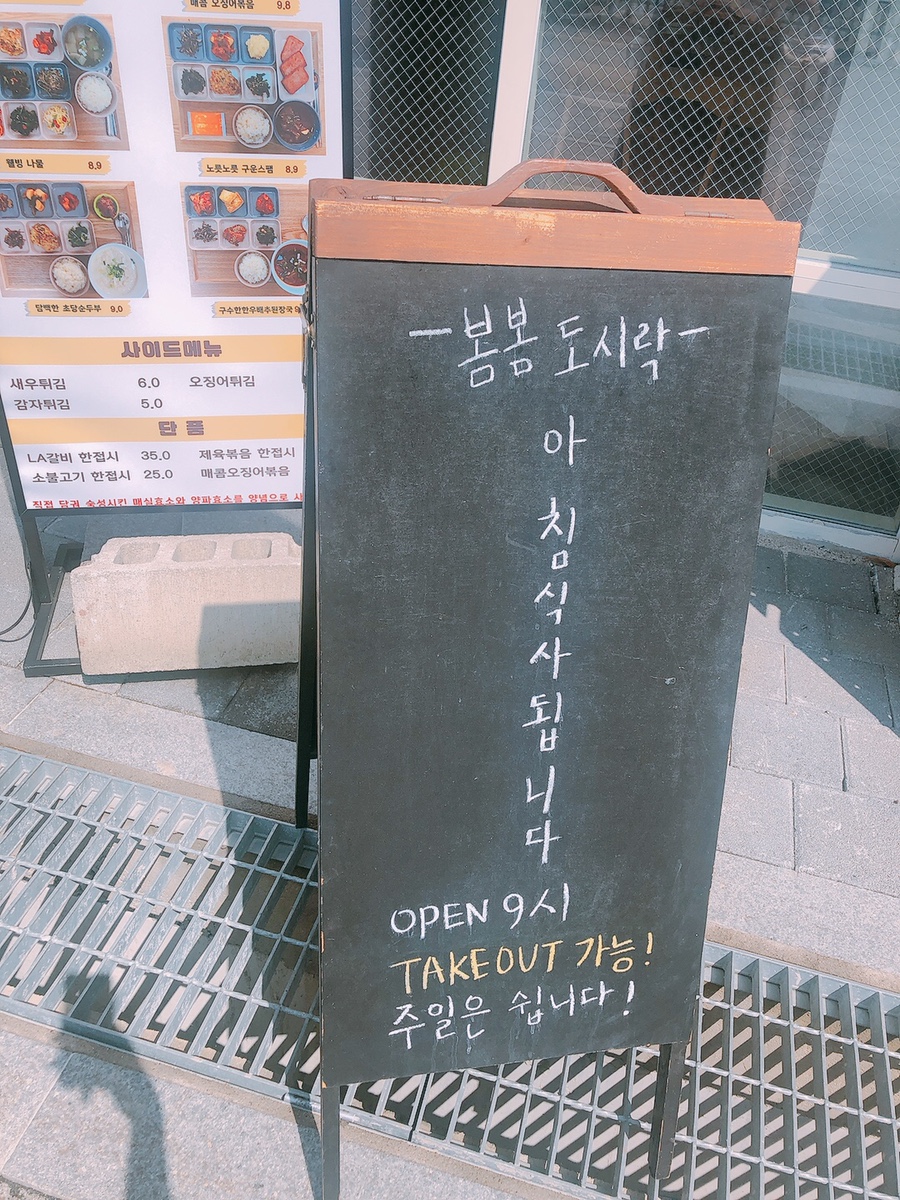 매콤 오징어볶음 9.8
웰빙 나물 8.9
노릇노릇 구운스팸 8.9
담백한 초당순두부 9.0
구수한한우배추된장국 9
사이드메뉴
새우튀김 6.0 오징어튀김
감자튀김 5.0
단 품
LA갈비 한접시 35.0 제육볶음 한접시
소불고기 한접시 25.0 매콤오징어볶음
직접 담궈 숙성시킨 매실효소와 양파효소를 양념으로 사
-봄봄 도시락-
아
침
식
사
됩
니
다
OPEN 9시
TAKEOUT 가능!
주일은 쉽니다!